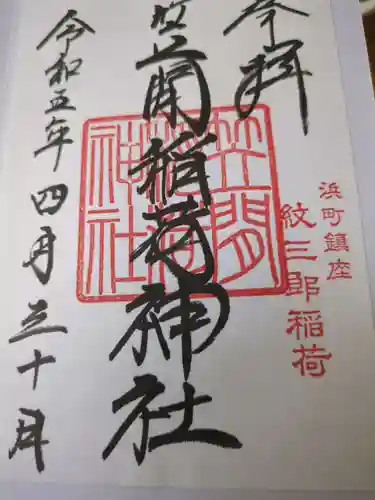 参拝
浜町鎮座
紋三郎稲荷
笠間稲荷神社
笠間
稲荷
神社
令和五年四月三十日